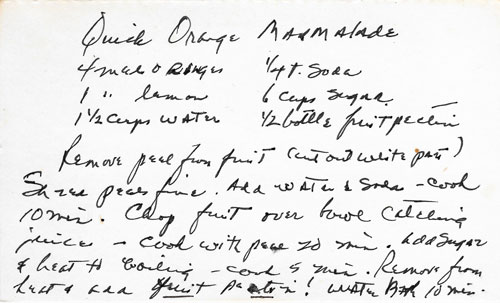 Quick Orange Marmalade
4 med oranges 1/4 t. Soda
1 " lemon 6 cups Sugar
1 1/2 cups water 1/2 bottle fruit pectin
Remove peel from fruit (cut out white part)
Shred peels fine. Add water & Soda - cook
10 min. Chop fruit over bowl catching
juice - cook with peel 20 min. add Sugar
& heat to boiling - cook 5 min. Remove from
heat & add fruit pectin! Water Bath 10 min.